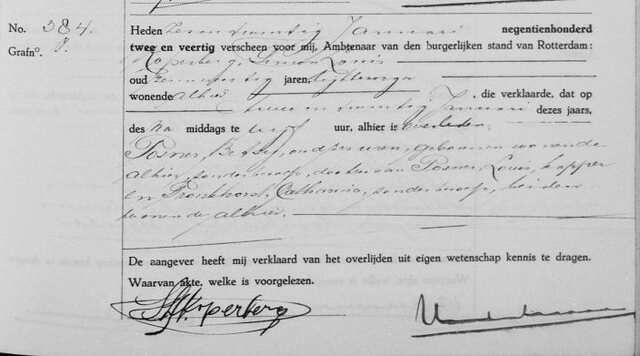 No. 384.
Heden zeven twintig Januari negentienhonderd
Grafno.
twee en veertig verscheen voor mij, Ambtenaar van den burgerlijken stand van Rotterdam:
Koperberg, Simon Louis
oud jaren,
wonende alhier, die verklaarde, dat op
twee en twintig Januari dezes jaars,
des na middags te vijf uur, alhier is overleden:
Posner, Betsy, oud uren, geboren en wonende
alhier, zonder beroep, dochter van Posner, Louis, kapper
en Bronkhorst, Catharina, zonder beroep, beiden
wonende alhier.
De aangever heeft mij verklaard van het overlijden uit eigen wetenschap kennis te dragen.
Waarvan akte, welke is voorgelezen.
SLKoperberg